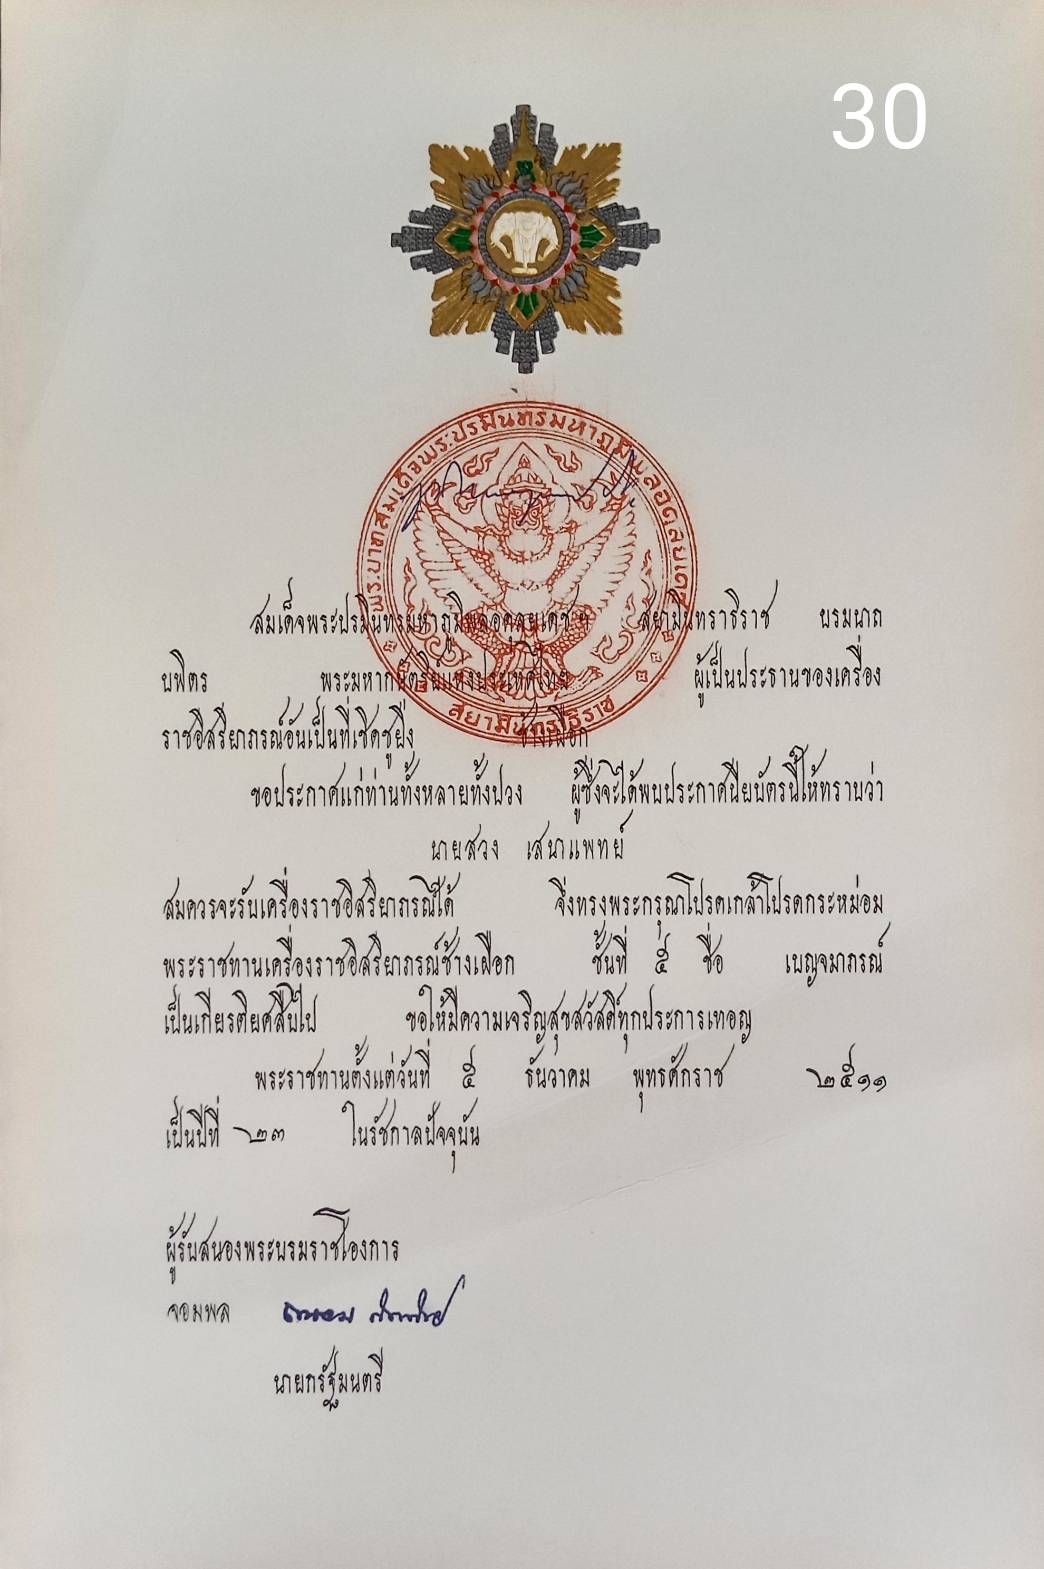 30
พระบาทสมเด็จพระปรมินทรมหาภูมิพลอดุลยเดช
สยามินทราธิราช
สมเด็จพระปรมินทรมหาภูมิพลอดุลยเดช ฯ สยามินทราธิราช บรมนาถ
บพิตร พระมหากษัตริย์แห่งประเทศไทย ผู้เป็นประธานของเครื่อง
ราชอิสริยาภรณ์อันเป็นที่เชิดชูยิ่ง ช้างเผือก
ขอประกาศแก่ท่านทั้งหลายทั้งปวง ผู้ซึ่งจะได้พบประกาศนียบัตรนี้ให้ทราบว่า
นายสวง เสนาแพทย์
สมควรจะรับเครื่องราชอิสริยาภรณ์ได้ จึ่งทรงพระกรุณาโปรดเกล้าโปรดกระหม่อม
พระราชทานเครื่องราชอิสริยาภรณ์ช้างเผือก ชั้นที่ ๕ ชื่อ เบญจมาภรณ์
เป็นเกียรติยศสืบไป ขอให้มีความเจริญสุขสวัสดิ์ทุกประการเทอญ
พระราชทานตั้งแต่วันที่ ๕ ธันวาคม พุทธศักราช ๒๕๑๑
เป็นปีที่ ๒๓ ในรัชกาลปัจจุบัน
ผู้รับสนองพระบรมราชโองการ
จอมพล ถนอม กิตติขจร
นายกรัฐมนตรี